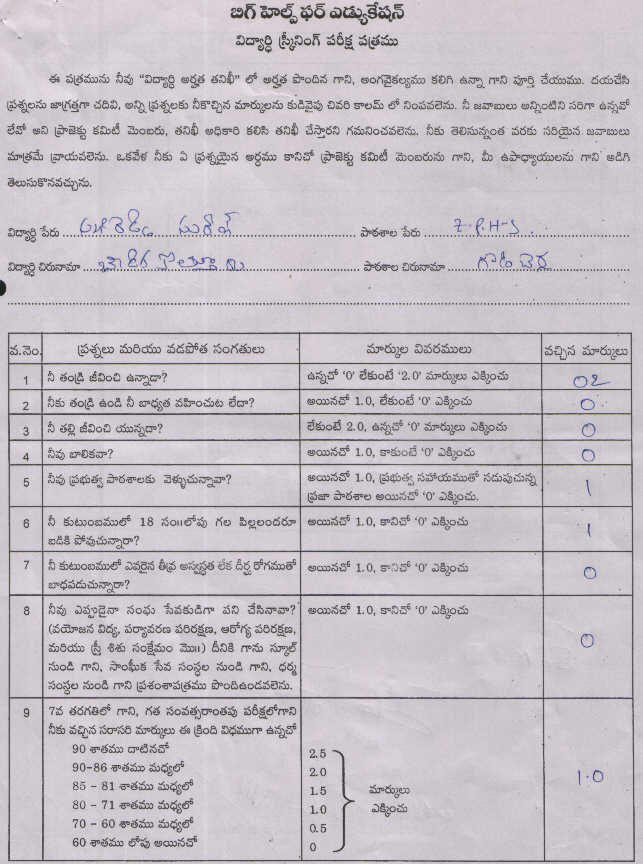 బిగ్ హెల్ప్ ఫర్ ఎడ్యుకేషన్
విద్యార్ధి స్క్రీనింగ్ పరీక్ష పత్రము
ఈ పత్రమును నీవు “విద్యార్ధి అర్హత తనిఖీ” లో అర్హత పొందిన గాని, అంగవైకల్యము కలిగి ఉన్నా గాని పూర్తి చేయుము. దయచేసి
ప్రశ్నలను జాగ్రత్తగా చదివి, అన్ని ప్రశ్నలకు నీకొచ్చిన మార్కులను కుడివైపు చివరి కాలమ్ లో నింపవలెను. నీ జవాబులు అన్నింటిని సరిగా ఉన్నవో
లేవో అని ప్రాజెక్టు కమిటీ మెంబరు, తనిఖీ అధికారి కలిసి తనిఖీ చేస్తారని గమనించవలెను. నీకు తెలిసున్నంత వరకు సరియైన జవాబులు
మాత్రమే వ్రాయవలెను. ఒకవేళ నీకు ఏ ప్రశ్నయైన అర్ధము కానిచో ప్రాజెక్టు కమిటీ మెంబరును గాని, మీ ఉపాధ్యాయులను గాని అడిగి
తెలుసుకొనవచ్చును.
విద్యార్ధి పేరు పాఠశాల పేరు Z.P.H-S
విద్యార్ధి చిరునామా పాఠశాల చిరునామా
వ.నెం. ప్రశ్నలు మరియు వడపోత సంగతులు మార్కుల వివరములు వచ్చిన మార్కులు
1 నీ తండ్రి జీవించి ఉన్నాడా? ఉన్నచో ‘0’ లేకుంటే ‘2.0’ మార్కులు ఎక్కించు 02
2 నీకు తండ్రి ఉండి నీ బాధ్యత వహించుట లేదా? అయినచో 1.0, లేకుంటే ‘0’ ఎక్కించు 0
3 నీ తల్లి జీవించి యున్నదా? లేకుంటే 2.0, ఉన్నచో ‘0’ మార్కులు ఎక్కించు 0
4 నీవు బాలికవా? అయినచో 1.0, కాకుంటే ‘0’ ఎక్కించు 0
5 నీవు ప్రభుత్వ పాఠశాలకు వెళ్ళుచున్నావా? అయినచో 1.0, ప్రభుత్వ సహాయముతో నడుపుచున్న 1
ప్రజా పాఠశాల అయినచో ‘0’ ఎక్కించు.
6 నీ కుటుంబములో 18 సం॥లోపు గల పిల్లలందరూ అయినచో 1.0, కానిచో ‘0’ ఎక్కించు 1
బడికి పోవుచున్నారా?
7 నీ కుటుంబములో ఎవరైన తీవ్ర అస్వస్థత లేక దీర్ఘ రోగముతో అయినచో 1.0, కానిచో ‘0’ ఎక్కించు 0
బాధపడుచున్నారా?
8 నీవు ఎప్పుడైనా సంఘ సేవకుడిగా పని చేసినావా? అయినచో 1.0, కానిచో ‘0’ ఎక్కించు 0
(వయోజన విద్య, పర్యావరణ పరిరక్షణ, ఆరోగ్య పరిరక్షణ,
మరియు స్త్రీ శిశు సంక్షేమం మొ॥) దీనికి గాను స్కూల్
నుండి గాని, సాంఘిక సేవ సంస్థల నుండి గాని, ధర్మ
సంస్థల నుండి గాని ప్రశంశాపత్రము పొందిఉండవలెను.
9 7వ తరగతిలో గాని, గత సంవత్సరాంతపు పరీక్షలోగాని
నీకు వచ్చిన సరాసరి మార్కులు ఈ క్రింది విధముగా ఉన్నచో
90 శాతము దాటినచో 2.5
90-86 శాతము మధ్యలో 2.0
85 - 81 శాతము మధ్యలో 1.5 మార్కులు 1.0
80 - 71 శాతము మధ్యలో 1.0 ఎక్కించు
70 - 60 శాతము మధ్యలో 0.5
60 శాతము లోపు అయినచో 0